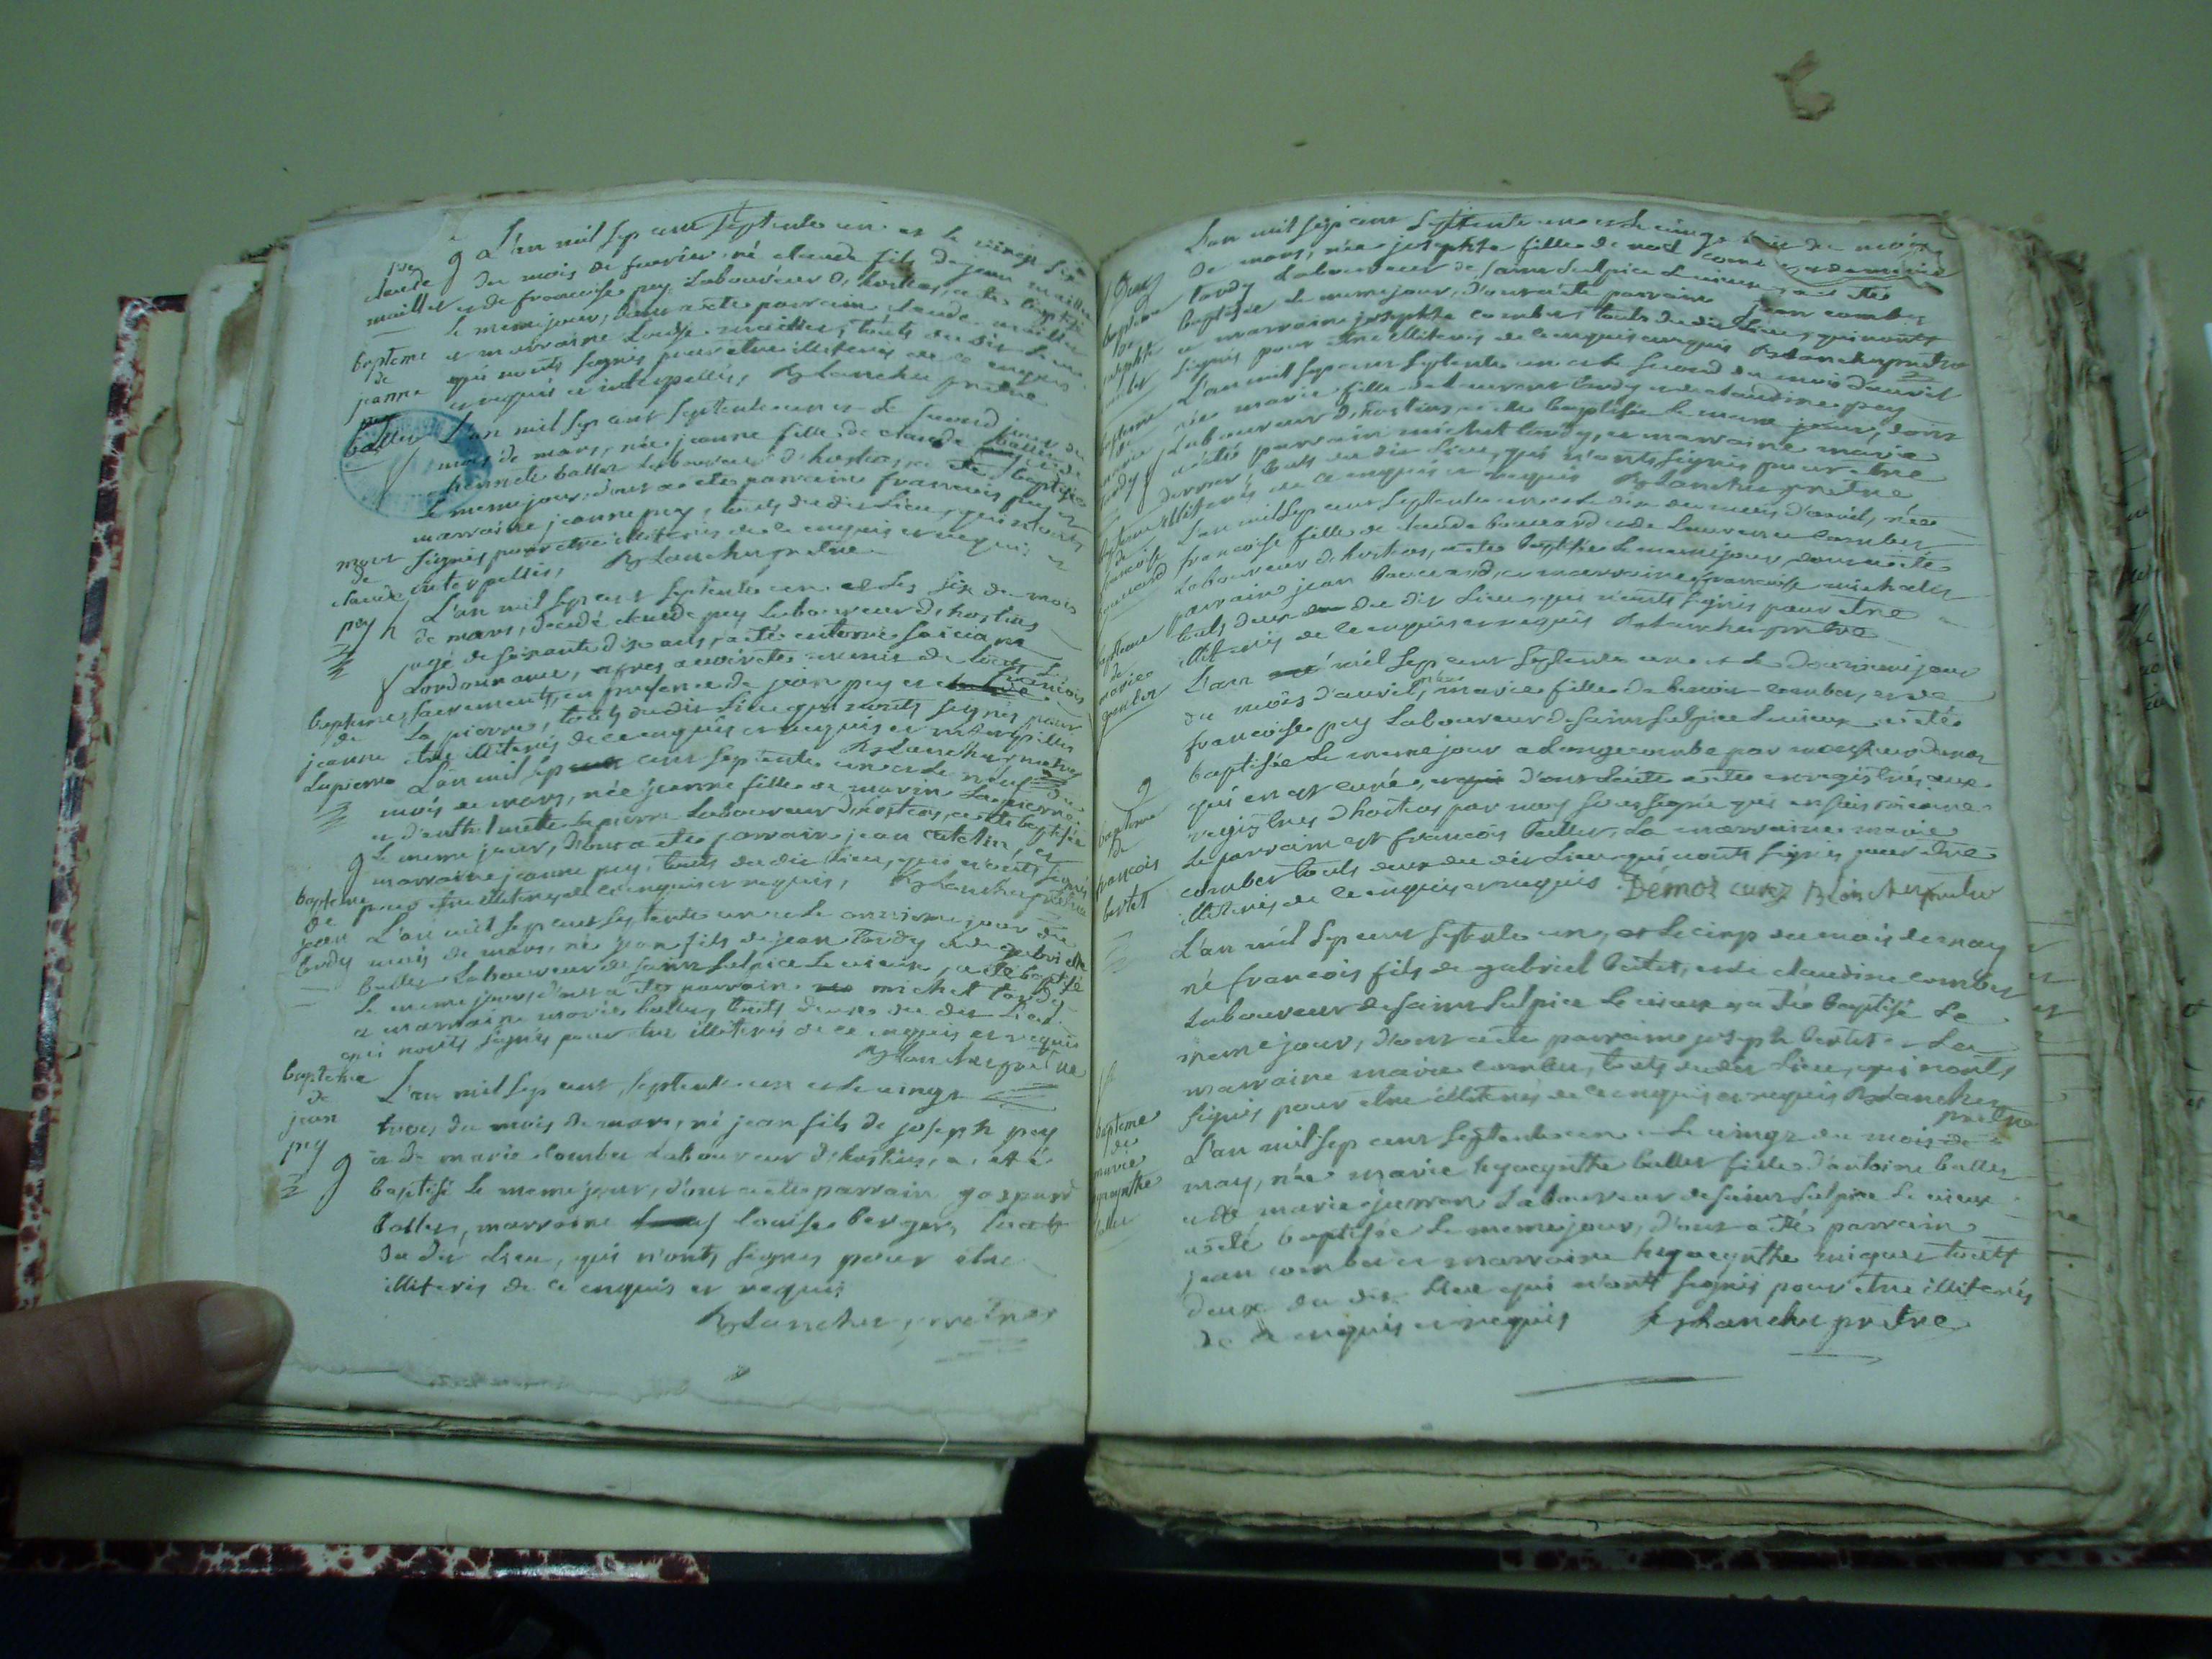 L'an mil sep cent septente un et le vingt six
du mois de fevrier né claude fils de jean maillet
et de francoise pey Laboureur d'hostias, a ete baptisé
le meme jour, dont a ete parrain claude maillet
et marraine Louise maillet, touts du dit Lieu
qui nonts signés pour etre illiterés de ce enquis
et requis et interpellés, Blanchet pretre
claude
maillet
bapteme
de
jeanne
pey
ballet
L'an mil sep cent septente un et le second jour du
mois de mars, née jeanne fille de claude
ballet Laboureur d'hostias, a ete baptisée
le meme jour, dont a ete parrain francois pey et
marraine jeanne pey, touts du dit Lieu, qui nonts
signés pour etre illiterés de ce enquis et requis et
interpellés, Blanchet pretre
mort
de
claude
pey
L'an mil sep cent septente un et les six du mois
de mars, decedé claude pey Laboureur d'hostias
agé de soixante dix ans, a eté enterré
Lordonance, apres avoir ete munis de touts
sacrements, en presence de jean pey et francois
La pierre, touts du dit Lieu qui nonts signés pour
etre illiterés de ce enquis et requis et interpellés
Blanchet pretre
bapteme
de
jeanne
Lapierre
L'an mil sep cent septente un et le neuf du
mois de mars, née jeanne fille de marin Lapierre
et d'anthelmette Lapierre Laboureur d'hostias, a ete baptisée
le meme jour, dont a ete parrain jean
marraine jeanne pey, touts du dit Lieu, qui n'onts signés
pour etre illiterés de ce enquis et requis, Blanchet pretre
bapteme
de
jean
tardy
L'an mil sep cent septente un et le onzieme jour du
mois de mars, né jean fils de jean tardy et de gabrielle
ballet Laboureur de saint sulpice le vieux, a eté baptisé
le meme jour, dont a ete parrain michel tardy
et marraine marie ballet, touts deux du dit Lieu
qui nonts signés pour etre illiterés de ce enquis et requis
Blanchet pretre
bapteme
de
jean
pey
L'an mil sep cent septente un et le vingt
trois du mois de mars, né jean fils de joseph pey
et de marie combet Laboureur d'hostias, a eté
baptisé le meme jour, dont a ete parrain gaspard
ballet, marraine louise berger, touts
du dit Lieu, qui n'onts signés pour etre
illiterés de ce enquis et requis
Blanchet, pretre
L'an mil sep cent septente un et le vingt du mois
de mars, née josephte fille de noel
tardy Laboureur de saint sulpice le vieux, a eté
baptisée le meme jour, dont a ete parrain jean combet
et marraine josephte combet, touts du dit Lieu, qui nonts
signés pour etre illiterés de ce enquis et requis Blanchet pretre
bapteme
de
josephte
combet
L'an mil sep cent septente un et le second du mois d'avril
née marie fille de Laurent tardy et de claudine pey
Laboureur d'hostias, a ete baptisée le meme jour, dont
a eté parrain michel tardy, et marraine marie
touts du dit Lieu, qui n'onts signés pour etre
illiterés de ce enquis et requis Blanchet pretre
L'an mil sep cent septente un et le dix du mois d'avril, née
francoise fille de claude bouvard et de Laurence combet
Laboureur d'hostias, a ete baptisée le meme jour, dont a eté
parrain jean bouvard, et marraine francoise michalet
touts deux du dit Lieu, qui n'onts signés pour etre
illiterés de ce enquis et requis Blanchet pretre
de
francoise
bouvard
bapteme
de
marie
combet
L'an mil sep cent septente un et le douzieme jour
du mois d'avril, née marie fille de benoit combet, et de
francoise pey Laboureur de saint sulpice le vieux a eté
baptisée le meme jour a Longecombe par monsieur demoz
qui en est curé, dont l'acte a ete enregistré aux
registres d'hostias par moy soussigné qui en suis vicaire
le parrain est francois ballet, La marraine marie
combet touts deux du dit Lieu qui n'onts signés pour etre
illiterés de ce enquis et requis Demoz curez Blanchet pretre
bapteme
de
francois
bertet
L'an mil sep cent septente un, et le cinq du mois de may
né francois fils de gabriel bertet, et de claudine combet
Laboureur de saint sulpice le vieux, a eté baptisé le
meme jour, dont a ete parrain joseph bertet et La
marraine marie combet, touts du dit Lieu, qui nonts
signés pour etre illiterés de ce enquis et requis Blanchet
pretre
bapteme
de
marie
hyacynthe
ballet
L'an mil sep cent septente un et le vingt du mois de
may, née marie hyacynthe ballet fille d'antoine ballet
et de marie Laboureur de saint sulpice le vieux
a eté baptisée le meme jour, dont a eté parrain
jean combet et marraine hyacynthe touts
deux du dit Lieu qui n'onts signés pour etre illiterés
de ce enquis et requis Blanchet pretre